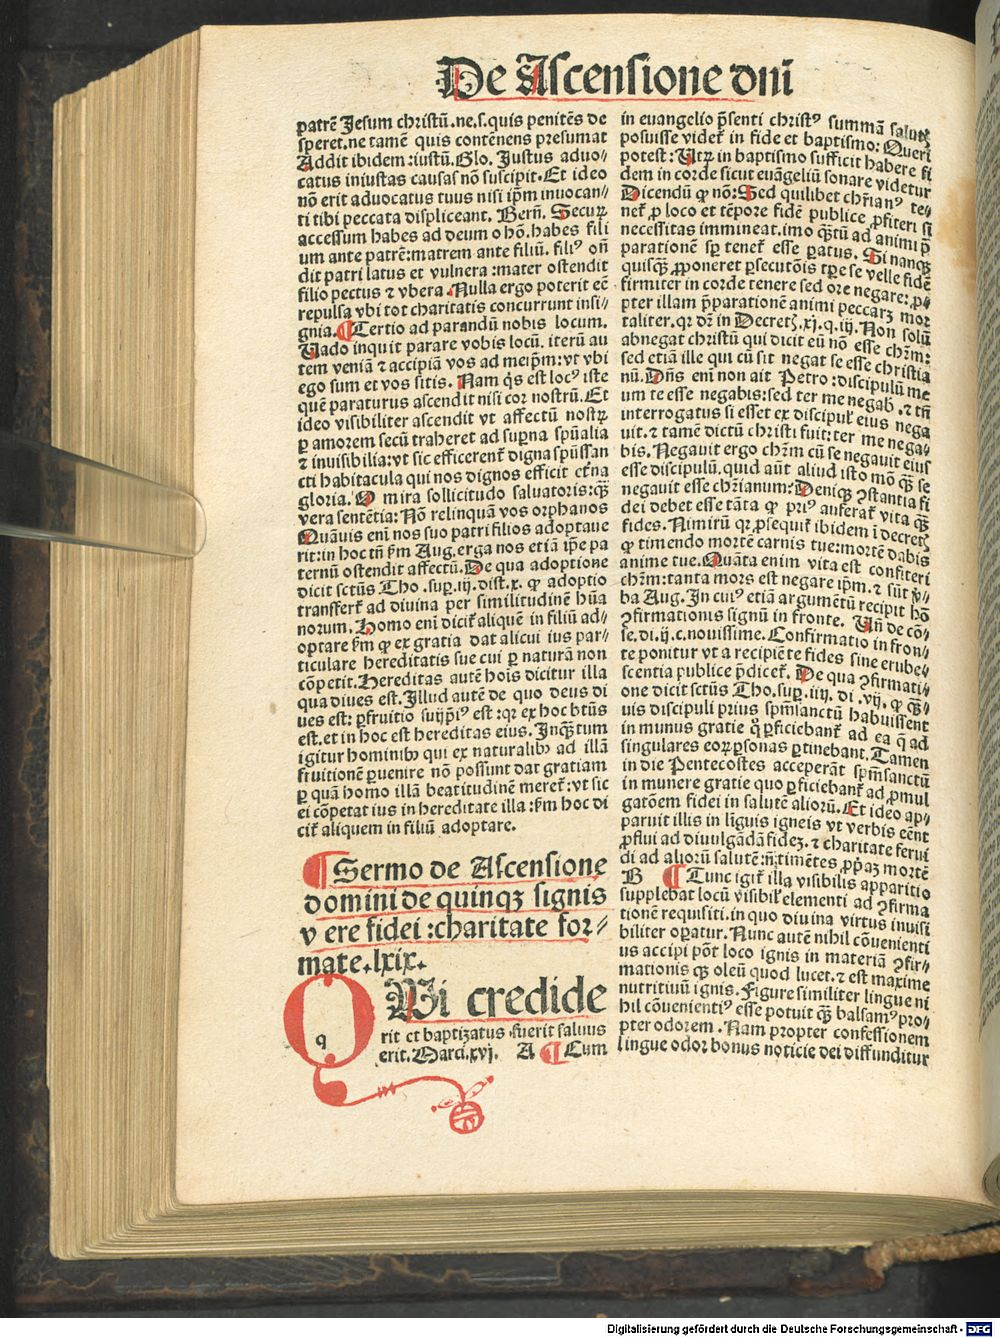 De Ascensione dñi
patrē Jesum christū.ne.s.quis penitēs de
speret.ne tamē quis contēnens presumat
Addit ibidem:iustū.Glo. Justus aduo⸗
catus iniustas causas nō suscipit. Et ideo
nō erit aduocatus tuus nisi ip̄m inuocan⸗
ti tibi peccata displiceant. Bern̄. Securꝫ
accessum habes ad deum o hō.habes fili
um ante patrē:matrem ante filiū. filiꝰ oñ
dit patri latus et vulnera:mater ostendit
filio pectus ⁊ vbera. Nulla ergo poterit eē
repulsa vbi tot charitatis concurrunt insi⸗
gnia. ¶Tertio ad parandū nobis locum.
Uado inquit parare vobis locū. iterū au
tem veniā ⁊ accipiā vos ad meip̄m:vt vbi
ego sum et vos sitis. Nam q̇s est locꝰ iste
quē paraturus ascendit nisi cor nostrū. Et
ideo visibiliter ascendit vt affectū nostꝝ
ꝑ amorem secū traheret ad suꝑna spūalia
⁊ inuisibilia:vt sic efficerent᷑ digna spūssan
cti habitacula qui nos dignos efficit et̄na
gloria. O mira sollicitudo saluatoris:qꝫ̄
vera sentētia: Nō relinquā vos orphanos
Quāuis enī nos suo patri filios adoptaue
rit:in hoc tñ ẜm Aug. erga nos etiā ip̄e pa
ternū ostendit affectū. De qua adoptione
dicit sctūs Tho.suꝑ.iij.dist.x. ꝙ adoptio
transfert᷑ ad diuina per similitudinē hūa
norum. Homo enī dicit᷑ aliquē in filiū ad⸗
optare ẜm ꝙ ex gratia dat alicui ius par⸗
ticulare hereditatis sue cui ꝑ naturā non
cōpetit. Hereditas autē hoīs dicitur illa
qua diues est. Illud autē de quo deus di
ues est: ꝑfruitio suijp̄iꝰ est:qꝛ ex hoc btūs
est.et in hoc est hereditas eius. Inqꝫ̄tum
igitur hominibꝫ qui ex naturalibꝫ ad illā
fruitionē ꝑuenire nō possunt dat gratiam
ꝑ quā homo illā beatitudinē meret᷑:vt sic
ei cōpetat ius in hereditate illa:ẜm hoc di
cit᷑ aliquem in filiū adoptare.
¶Sermo de Ascensione
domini de quinqꝫ signis
vere fidei:charitate for⸗
mate.lxix.
QUi credide
rit et baptizatus fuerit saluus
erit. Marci.xvj. A ¶Cum
in euangelio p̄senti christꝰ summā salutꝭ
posuisse videt᷑ in fide et baptismo: Queri
potest: Utꝝ in baptismo sufficit habere fi
dem in corde sicut euāgeliū sonare videtur
Dicendū ꝙ nō: Sed quilibet chr̄ianꝰ te⸗
net᷑ ꝓ loco et tēpore fidē publice ꝓfiteri si
necessitas immineat.imo qꝫ̄tū ad animi p̄
parationē sꝑ tenet᷑ esse ꝑatus. Si nanqꝫ
quisqꝫ̄ ꝓponeret ꝑsecutōis tꝑe se velle fidē
firmiter in corde tenere sed ore negare: ꝓ⸗
pter illam p̄parationē animi peccaꝝ mor
taliter.qꝛ dr̄ in Decretꝭ.xj.q.iij. Non solū
abnegat christū qui dicit eū nō esse chr̄m:
sed etiā ille qui cū sit negat se esse christia
nū. Dn̄s enī non ait Petro:discipulū me
um te esse negabis:sed ter me negab̄.⁊ tñ
interrogatus si esset ex discipul᷑ eius nega
uit.⁊ tamē dictū christi fuit:ter me nega⸗
bis. Negauit ergo chr̄m cū se negauit eius
esse discipulū.quid aūt aliud isto mō qꝫ̄ se
negauit esse chr̄ianum: Deniqꝫ ꝯstantia fi
dei debet esse tāta ꝙ priꝰ auferat᷑ vita qꝫ̄
fides. Nimirū qꝛ ꝓsequit᷑ ibidem ī decretꝭ
ꝙ timendo mortē carnis tue:mortē dabis
anime tue. Quāta enim vita est confiteri
chr̄m:tanta mors est negare ip̄m.⁊ sūt v̄⸗
ba Aug. In cuiꝰ etiā argumētū recipit hō
ꝯfirmationis signū in fronte. Uñ de cō⸗
se.di.ij.c.nouissime. Confirmatio in fron⸗
te ponitur vt a recipiēte fides sine erube⸗
scentia publice p̄dicet᷑. De qua ꝯfirmati⸗
one dicit sctūs Tho.suꝑ.iiij.di.vij. ꝙ qꝫ̄⸗
uis discipuli prius spm̄sanctū habuissent
in munus gratie q̇ ꝑficiebant᷑ ad ea q̄ ad
singulares eoꝝ ꝑsonas ꝑtinebant. Tamen
in die Pentecostes acceperāt spm̄sanctū
in munere gratie quo ꝑficiebant᷑ ad ꝓmul
gatōem fidei in salutē aliorū. Et ideo ap⸗
paruit illis in līguis igneis vt verbis eēnt
ꝓflui ad diuulgādā fideꝫ.⁊ charitate ferui
di ad aliorū salutē:n̄:timētes ꝓpꝛaꝫ mortē
B ¶Tunc igit᷑ illa visibilis apparitio
supplebat locū visibil᷑ elementi ad ꝯfirma
tionē requisiti.in quo diuina virtus inuisi
biliter oꝑatur. Nunc autē nihil cōuenienti
us accipi pōt loco ignis in materiā ꝯfir⸗
mationis qꝫ̄ oleū quod lucet.⁊ est maxime
nutritiuū ignis. Figure similiter lingue ni
hil cōuenientiꝰ esse potuit qꝫ̄ balsamꝰ pro⸗
pter odorem. Nam propter confessionem
lingue odor bonus noticie dei diffunditur
Digitalisierung gefördert durch die Deutsche Forschungsgemeinschaft - DFG